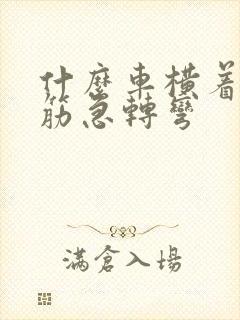 什麼車橫着
筋急轉彎
滿倉入場